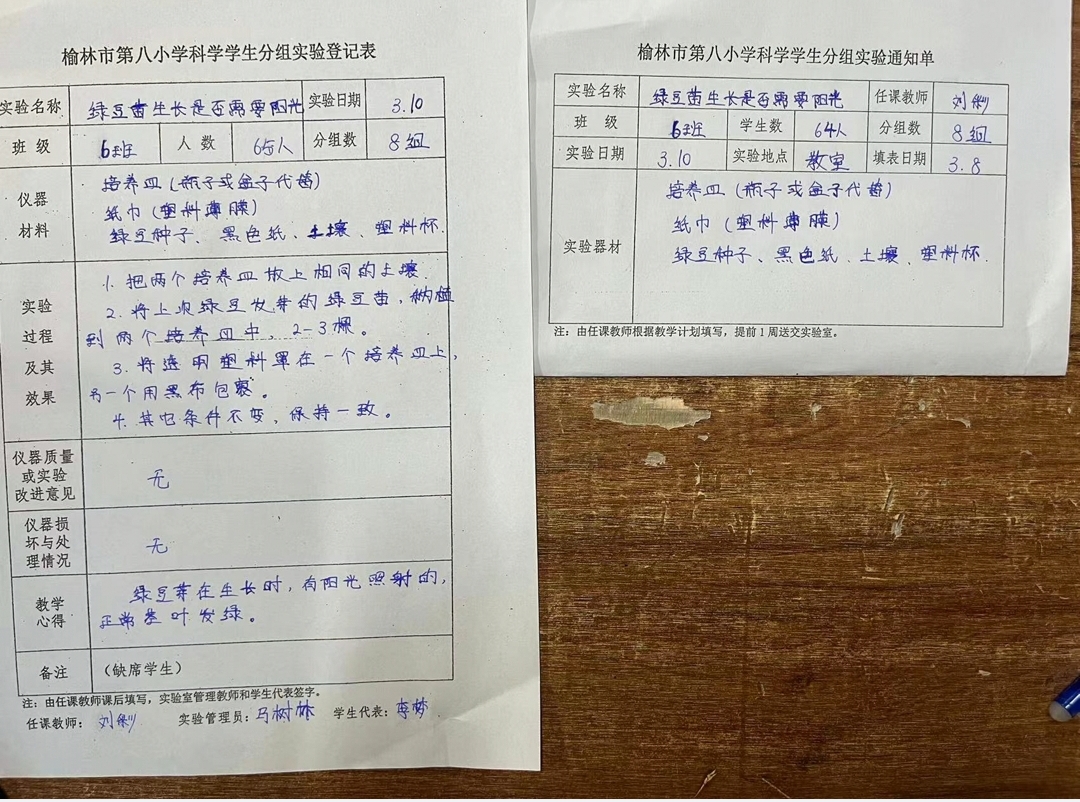 榆林市第八小学科学学生分组实验登记表
实验名称 绿豆苗生长是否需要阳光 实验日期 3.10
班 级 6班 人 数 65人 分组数 8组
仪器
材料
培养皿(瓶子或盒子代替)
纸巾(塑料薄膜)
绿豆种子、黑色纸、土壤、塑料杯.
实验
过程
及其
效果
1. 把两个培养皿放上相同的土壤.
2. 将上次绿豆发芽的绿豆苗,移植
到两个培养皿中,2-3棵。
3. 将透明塑料罩在一个培养皿上,
另一个用黑布包裹。
4. 其它条件不变,保持一致。
仪器质量
或实验
改进意见
无
仪器损
坏与处
理情况
无
教学
心得
绿豆芽在生长时,有阳光照射的,
正常茎叶发绿。
备注 (缺席学生)
注:由任课教师课后填写,实验室管理教师和学生代表签字。
任课教师: 刘 实验管理员:马树林 学生代表:李梦
榆林市第八小学科学学生分组实验通知单
实验名称 绿豆苗生长是否需要阳光 任课教师 刘
班 级 6班 学生数 64人 分组数 8组
实验日期 3.10 实验地点 教室 填表日期 3.8
实验器材
培养皿(瓶子或盒子代替)
纸巾(塑料薄膜)
绿豆种子、黑色纸、土壤、塑料杯.
注:由任课教师根据教学计划填写,提前1周送交实验室。